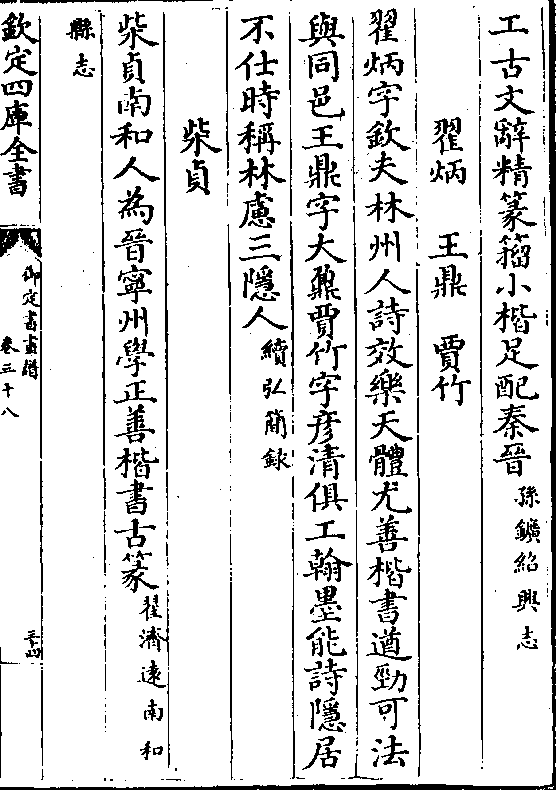 工古文辭精篆籀小楷足配秦晉孫鑛紹興志
翟炳　王鼎　賈竹
翟炳字欽夫林州人詩效樂天體尤善楷書遒勁可法
與同邑王鼎字大鼐賈竹字彥清俱工翰墨能詩隱居
不仕時稱林慮三隱人續弘簡錄
柴貞
柴貞南和人為晉寧州學正善楷書古篆翟濟遠南和
縣志
欽定四庫全書　御定書畫譜　卷三十八　三十四